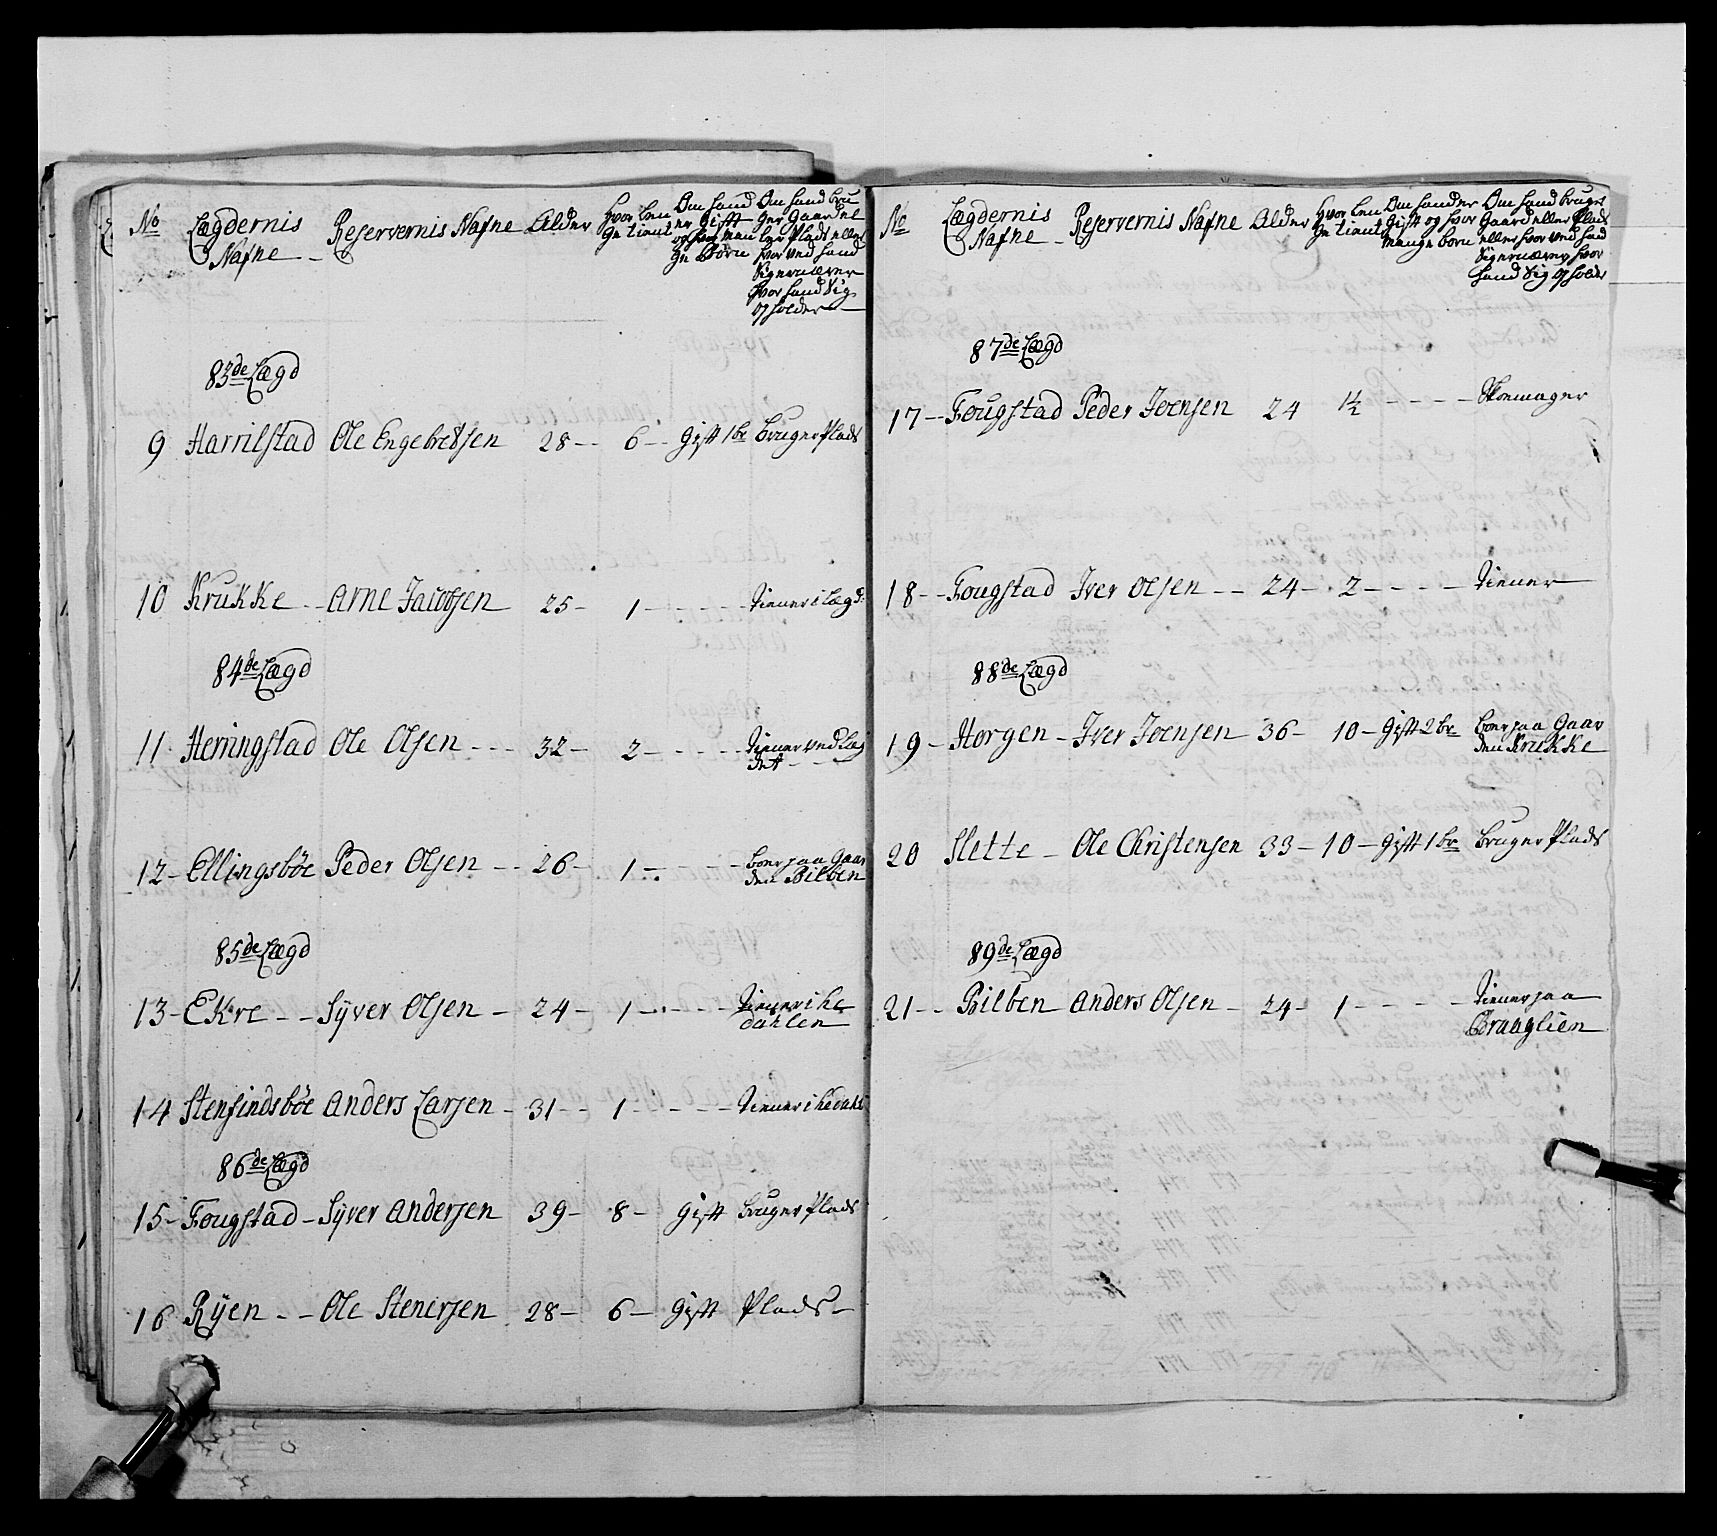 No Lægdernis Nafne Reservernis Nafne Alder Hvor lenge tient Om hand er Gift og hvor mange Børn Om hand bruger Gaard eller Plads eller hvor ved hand Sig ernærer hvor hand Sig opholder
83de Lægd
9 Harrilstad Ole Engebretsen 28 - 6 - Gift 1 br Bruger Plads
10 Krukke - Arne Jacobsen 25 - 1 - - - - tiener i Lægd
84de Lægd
11 Herringstad Ole Olsen - - - 32 - 2 - - - - tiener ved Læg
det
12 - Ellingsböe Peder Olsen - - 26 - 1 - - - boer paa Gaar
den Bilben
85de Lægd
13 - Ekre - - Syver Olsen - 24 - 1 - - - - tiener i He
dahlen
14 Stensindsböe Anders Larsen - 31 - 1 - - - - tiener i Hedahl
86de Lægd
15 - Fougstad - Syver Andersen 39 - 8 - Gift Bruger Plads
16 Ryen - - Ole Stenersen 28 - 6 - Gift Plads -
No Lægdernis Nafne - Reservernis Nafne Alder Hvor lenge tient Om hand er Gift og hvor mange born Om hand bruger Gaard eller Plads eller hvor ved hand Sig ernærer, hvor hand Sig opholder
87de Lægd
17 - Fougstad Peder Joensen 24 1½ - - - - Skomager
18 - - Fougstad Iver Olsen - - 24 - 2 - - - - tiener
88de Lægd
19 - Horgen - Iver Joensen 36 - 10 - Gift 2 br boer paa Gaar
den Krukke
20 Slette - Ole Christensen 33 - 10 - Gift 1 br Bruger Plads
89de Lægd
21 - - Bilben Anders Olsen - 24 - 1 - - - - tiener paa
Braaglien